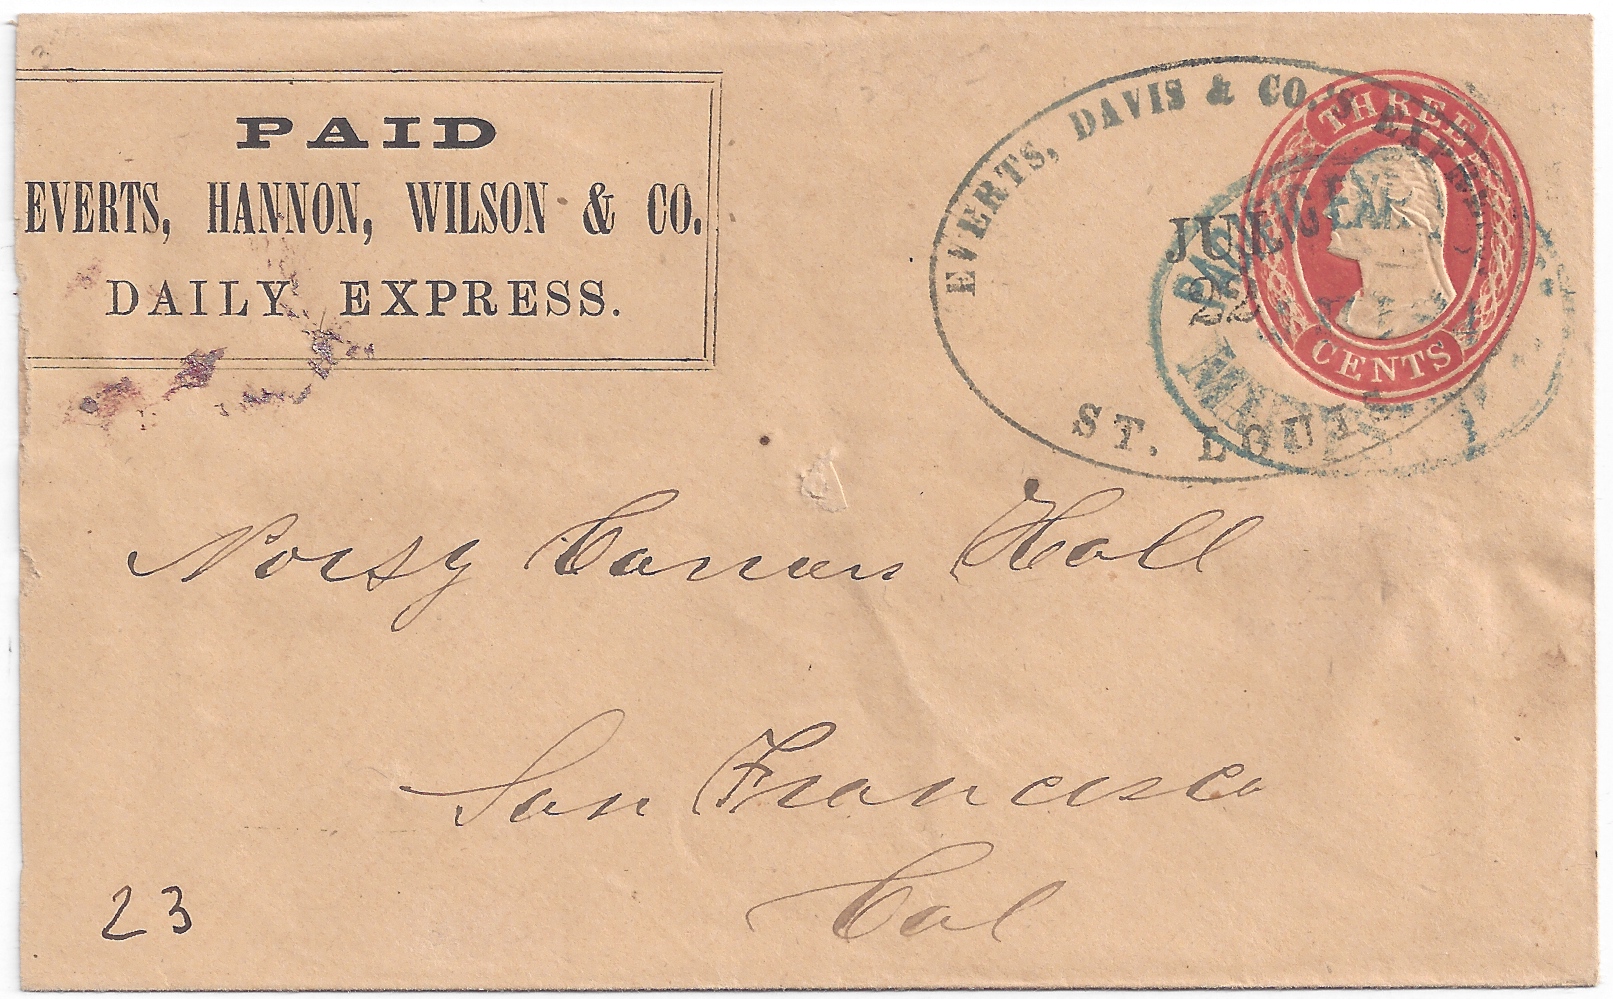 PAID
EVERTS, HANNON, WILSON & CO.
DAILY EXPRESS.
EVERTS, DAVIS & CO.'S EXPRESS.
JUN
22
ST. LOUIS
PACIFIC EXP
THREE
CENTS
Noisy Carriers Hall
San Francisco
Cal
23